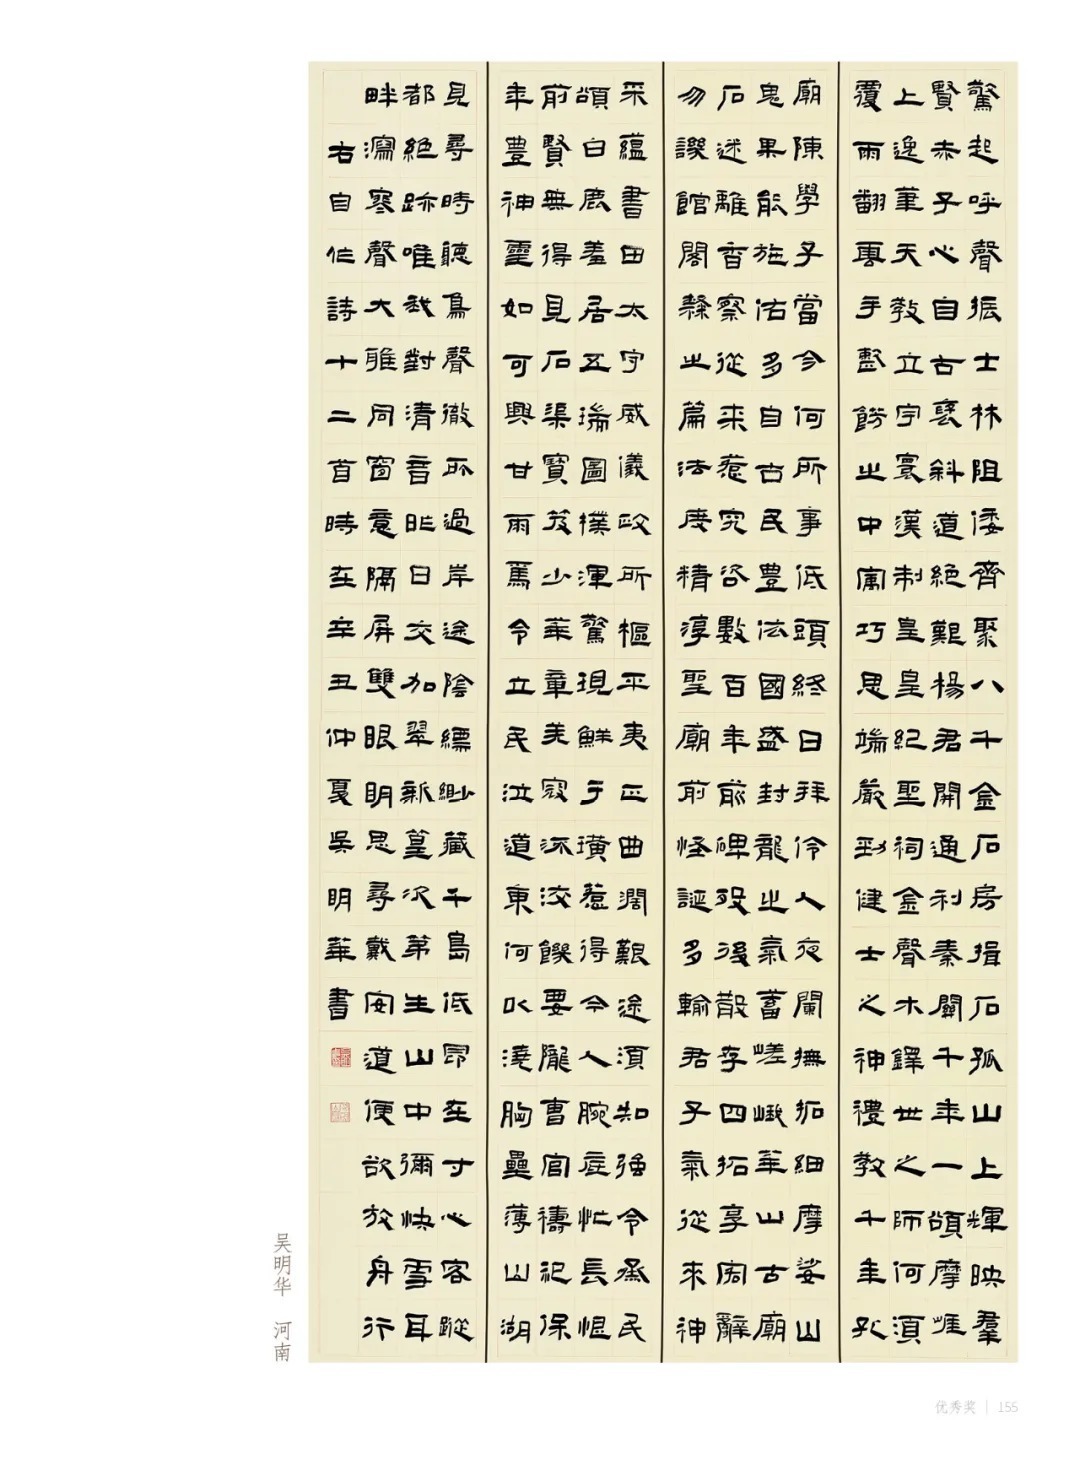 驚起呼聲振士林阻倭齊聚八千金石房揖石孤山上輝映羣
賢赤子心自古褒斜道絕艱楊君開通利秦關千年一頌摩崖
上逸筆天教立字寰漢制皇皇紀聖祠金聲木鐸世之師何須
覆雨翻雲手鑿餝之中寓巧思端嚴勁健士之神禮教千年孔
廟陳學子當今何所事低頭終日拜伶人夜闌撫拓細摩娑山
鬼果能施佑多自古民豐法國盛封龍之氣蓄嵯峨華山古廟
石迷離香察從來惹究咨數百年前碑毀後散存四拓享閎辭
勿謖館閣隸之篇法度精淳聖廟前怪誕多輸君子氣從來神
采蘊書田太守威儀政所樞平夷正曲潤艱途須知強令爲民
頌白鹿羞居五瑞圖樸渾驚現鮮于璜惹得今人腕底忙長恨
前賢無得見石渠寶笈少華章美寂流洨要隴曹宮禱祀保
年豐神靈如可興甘雨焉令立民泣道東何以澆胸壘薄山湖
見尋時聽鳥聲徹所過岸途陰縹緲藏千島低昂在寸心客蹤
都絕跡唯我對清音昨日交加翠新篁次第生山中彌快雪耳
畔瀉寒聲大雅同窗意隔屏雙眼明思尋戴安道便欲放舟行
右自作詩十二首時在辛丑仲夏吳明華書
吴明华 河南
优秀奖 | 155